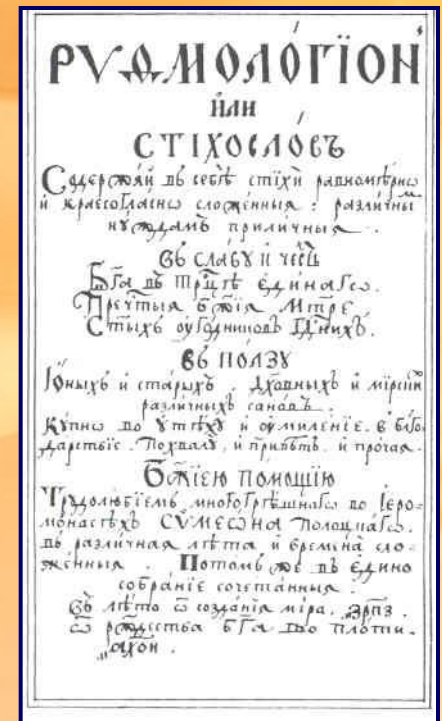 РѴѲМОЛО́ГЇОН
и҆лѝ
СТІХОСЛО́ВЪ
Содержѧ́й въ себѣ̀ стїхѝ равномѣ́рнѡ
и҆ краесогла́снѡ сложе́нныѧ : разли́чны̑м
нꙋ́ждамъ прили́чныѧ .
Въ сла́вꙋ и҆ че́сть
Бг҃а въ Трⷪ҇цѣ є҆ди́нагѡ .
Пречⷭ҇тыѧ бж҃їѧ Мт҃ре .
Ст҃ы́хъ ᲂу҆го́дникѡвъ Гдⷭ҇нихъ .
Въ по́лзꙋ
Ю҆́ныхъ и҆ ста́рыхъ . Дх҃о́вныхъ и҆ мїрски́х
разли́чныхъ сано́въ .
Кꙋ́пнѡ во ᲂу҆тѣ́хꙋ и҆ ᲂу҆миле́нїе . в бл҃го
да́рствїе . Похвалꙋ̀ , и҆ привѣ́тъ . и҆ про́чаѧ .
Бж҃їею по́мощїю
Трꙋдолю́бїемъ многогрѣ́шнагѡ во І҆еро-
мона́сѣхъ СѴМЕѠ́НА По́лоцкагѡ .
во разли́чнаѧ лѣ̑та и҆ времена̀ сло-
же́нныѧ . Пото́мъ же въ є҆ди́но
собра́нїе сочета́нныѧ .
Въ лѣ́то ѿ созда́нїѧ мі́ра . ҂зрпз .
ѿ рждⷭ҇ства̀ бг҃а во пло́ти .
҂ахои .